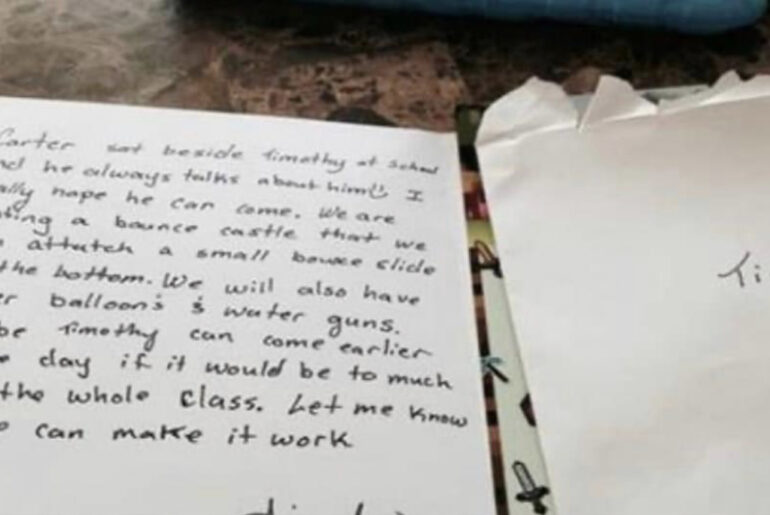 Carter sat beside Timothy at school
nd he always talks about him I
ally hope he can come. We are
ting a bounce castle that we
attutch a small bouxe slide
the bottom. We will also have
er balloon's & water guns.
be Timothy can come earlier
e day if it would be to much
the whole class. Let me know
e can make it work
Ti